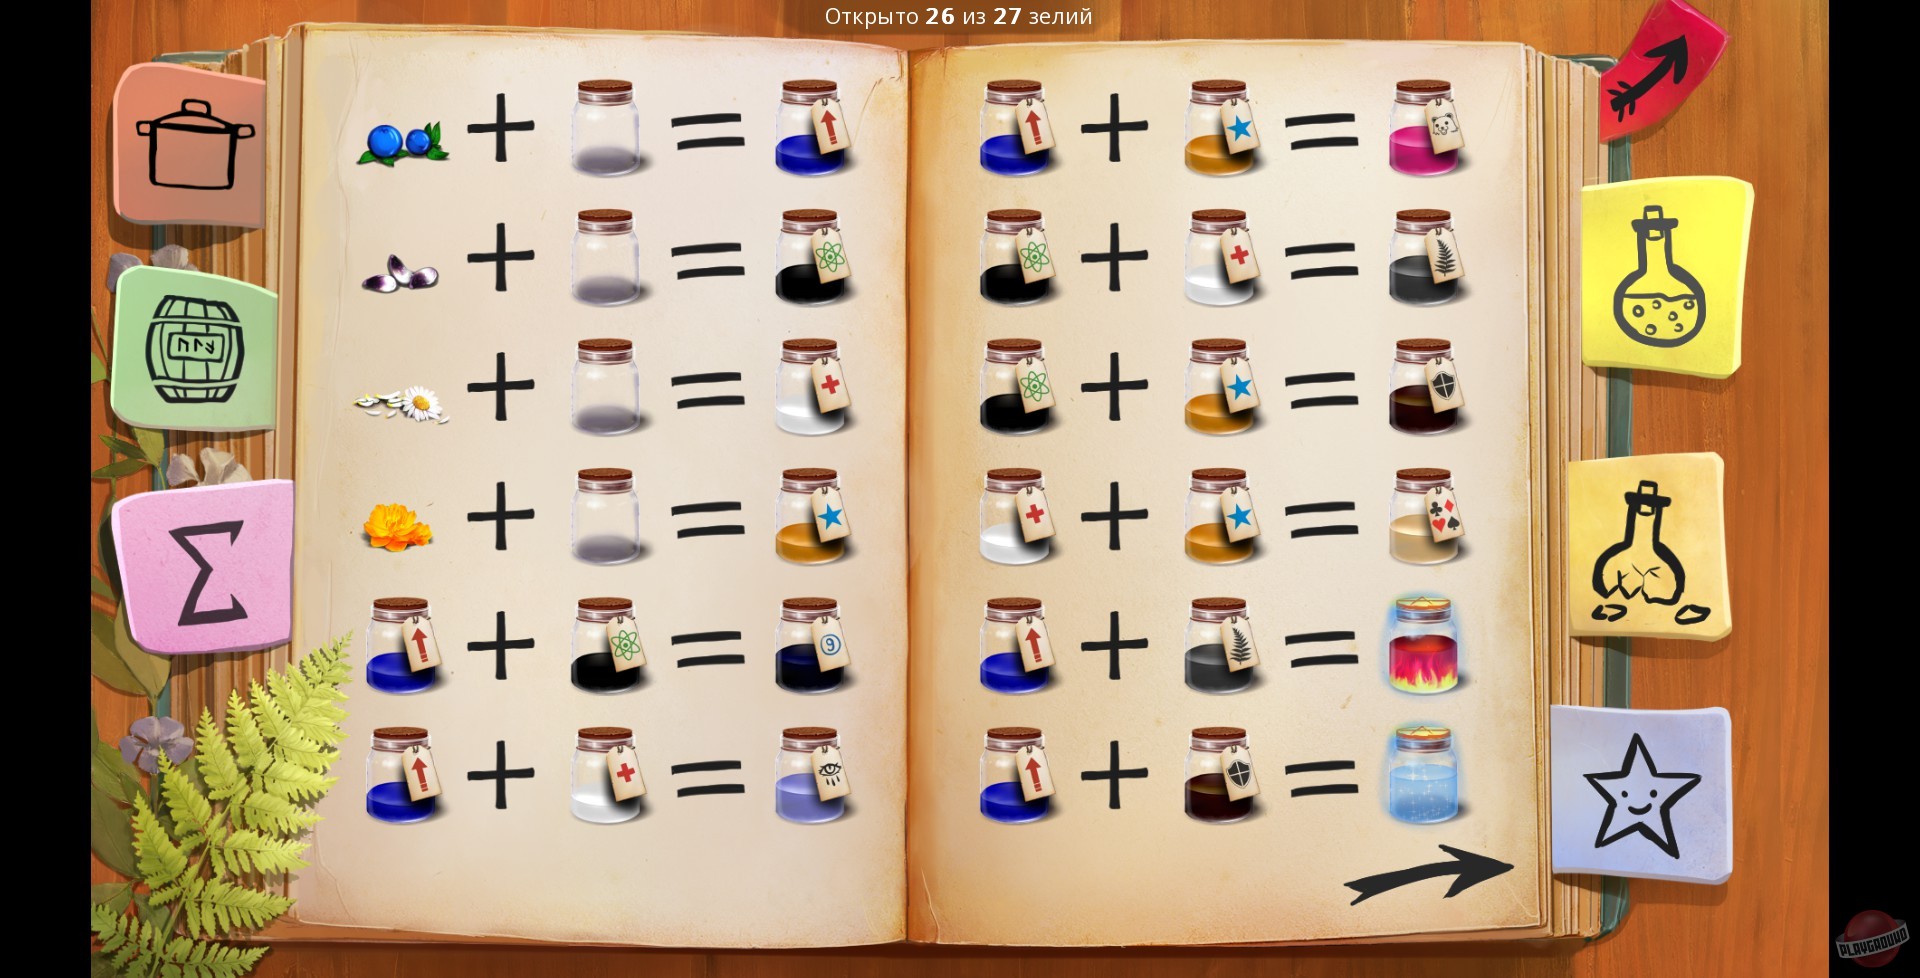 Открыто 26 из 27 зелий
9
PLAYGROUND